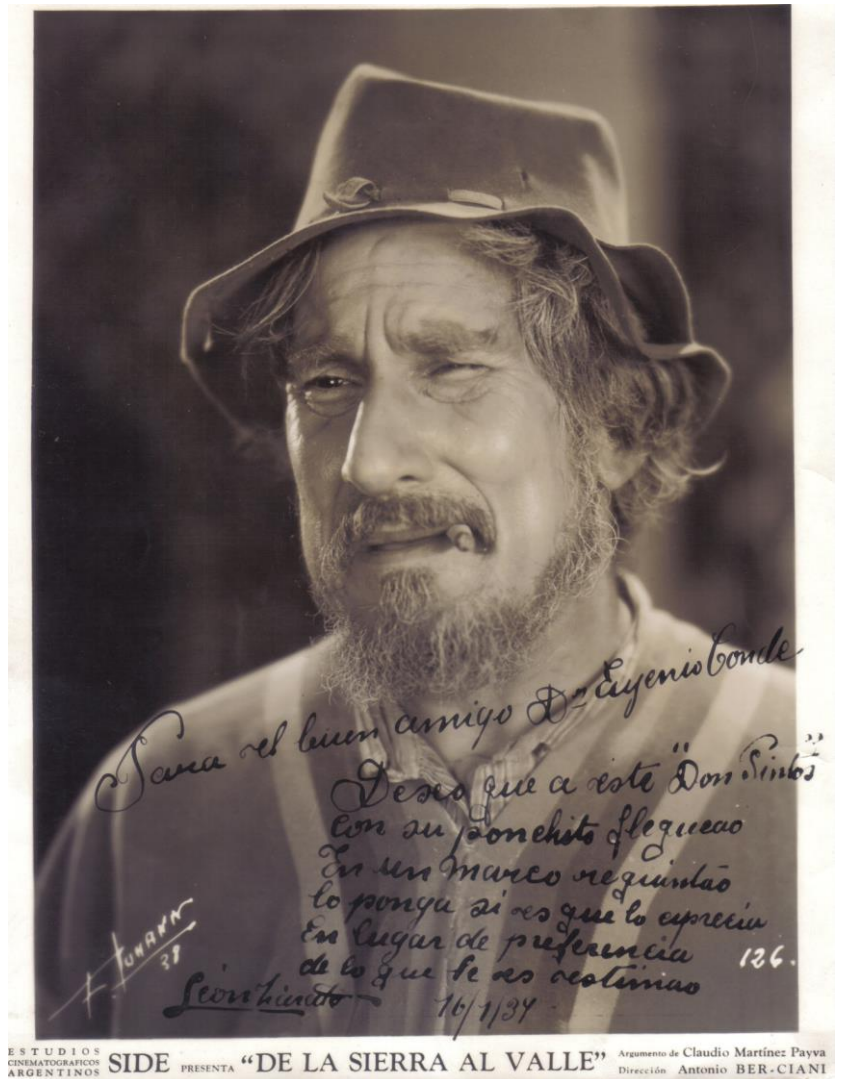 Para el buen amigo Dr Eugenio Conde
Deseo que a este "Don Pintos"
con su ponchito flequeao
En un marco requintao
lo ponga si es que lo aprecia
En lugar de preferencia
de lo que le es estimao
León Zárate
126.
38
ESTUDIOS
CINEMATOGRAFICOS
ARGENTINOS
SIDE PRESENTA "DE LA SIERRA AL VALLE"
Argumento de Claudio Martínez Payva
Dirección Antonio BER-CIANI